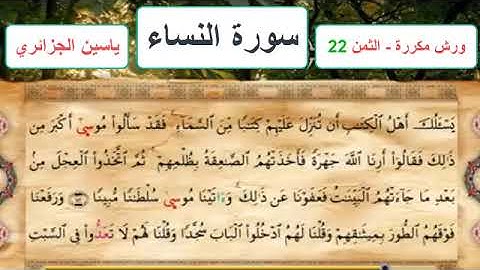 سورة النساء
ورش مكررة - الثمن 22
ياسين الجزائري
يَسْـَٔلُكَ أَهْلُ الْكِتَٰبِ أَن تُنَزِّلَ عَلَيْهِمْ كِتَٰبًا مِّنَ السَّمَآءِ فَقَدْ سَأَلُوا۟ مُوسَىٰٓ أَكْبَرَ مِن
ذَٰلِكَ فَقَالُوٓا۟ أَرِنَا اللَّهَ جَهْرَةً فَأَخَذَتْهُمُ الصَّٰعِقَةُ بِظُلْمِهِمْ ثُمَّ اتَّخَذُوا۟ الْعِجْلَ مِنۢ
بَعْدِ مَا جَآءَتْهُمُ الْبَيِّنَٰتُ فَعَفَوْنَا عَن ذَٰلِكَ وَءَاتَيْنَا مُوسَىٰ سُلْطَٰنًا مُّبِينًا وَرَفَعْنَا
فَوْقَهُمُ الطُّورَ بِمِيثَٰقِهِمْ وَقُلْنَا لَهُمُ ادْخُلُوا۟ الْبَابَ سُجَّدًا وَقُلْنَا لَهُمْ لَا تَعَدُّوا۟ فِي السَّبْتِ